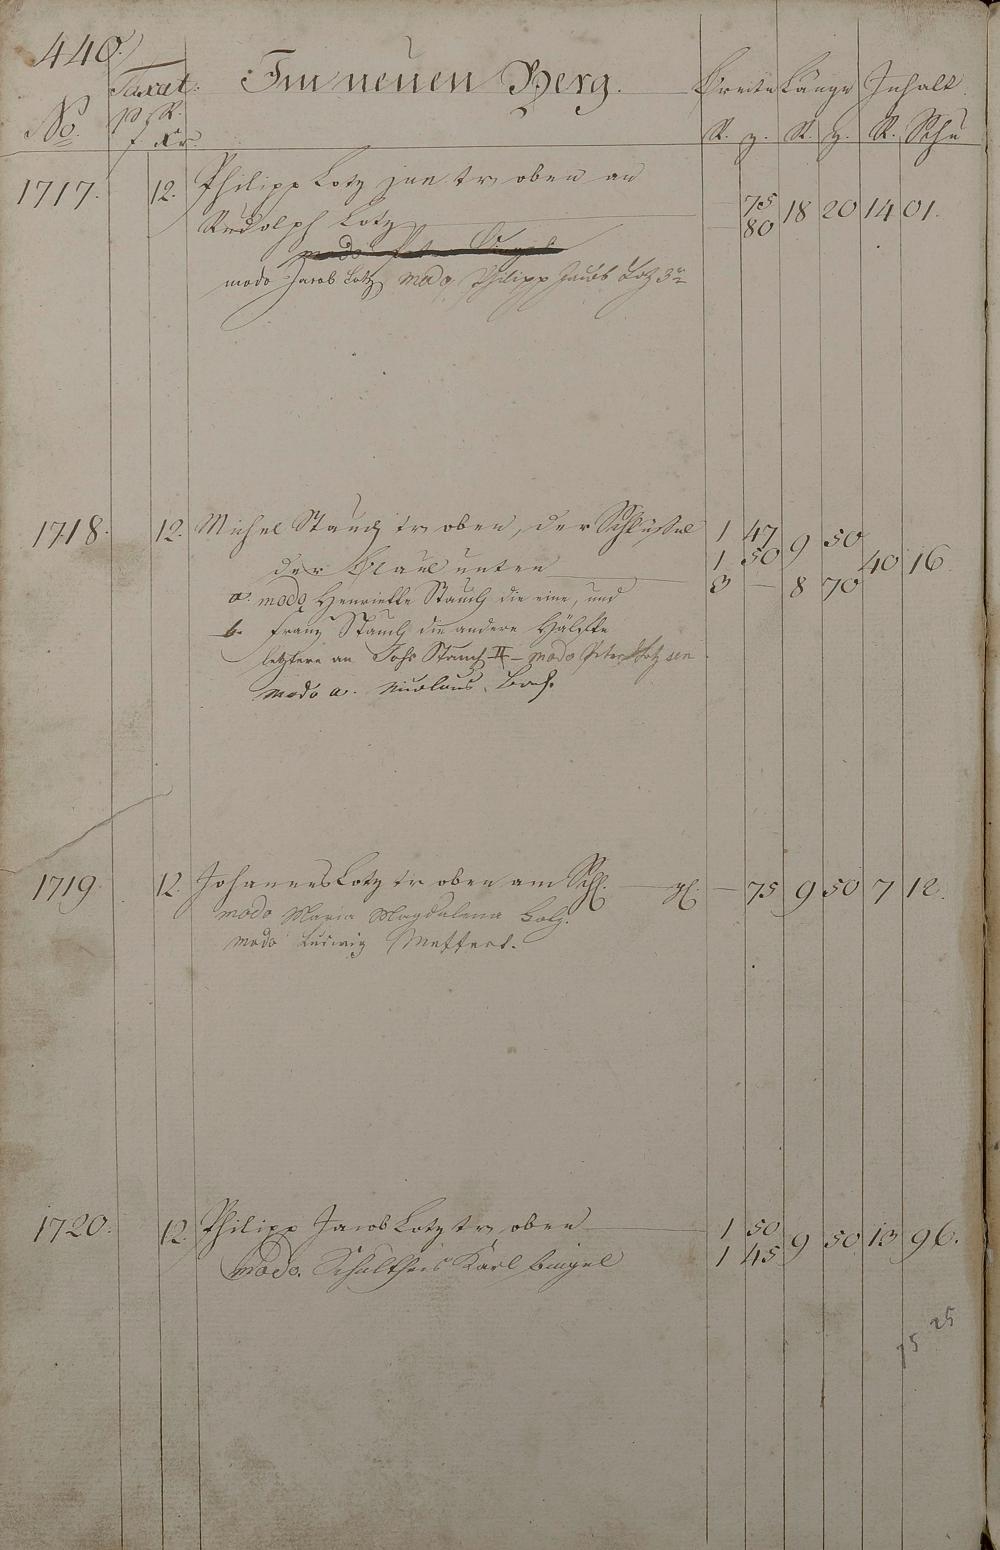 440.
Taxat: Im neuen Berg. Breite Länge Inhalt
No. p. R. R. z. R. z. R. Schu
f. Xr
1717. 12. Philipp Lotz jun tr oben an 75 18 20 14 01.
Rudolph Lotz 80
modo Peter Bingel
modo Jacob Lotz modo Philipp Jacob Lotz 3r
1718. 12. Michel Stauch tr oben, der Schlüssel 1 47 9 50
der Blaul unten 1 50 40 16
a. modo Henriette Stauch die eine, und 3 – 8 70
b. Franz Stauch die andere Hälfte
letztere an Johs Stauch II – modo Peter Lotz sen
modo a. Nicolaus Bach.
1719 12. Johannes Lotz tr oben am Schl. – 75 9 50 7 12.
modo Maria Magdalena Lotz.
modo Ludwig Meffert.
1720. 12. Philipp Jacob Lotz tr oben 1 50 9 50 13 96.
modo. Schultheis Karl Bingel 1 45
75 25